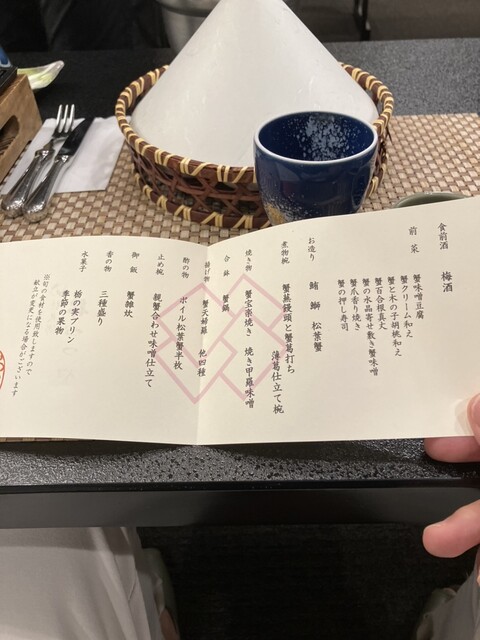 食前酒 梅酒
前菜 蟹味噌豆腐
蟹クリーム和え
蟹と木の子胡桃和え
蟹百合根真丈
蟹の水晶寄せ敷き蟹味噌
蟹爪香り焼き
蟹の押し寿司
お造り 鮪 鰤 松葉蟹
煮物椀 蟹蒸饅頭と蟹葛打ち
薄葛仕立て椀
焼き物 蟹宝楽焼き 焼き甲羅味噌
合鉢 蟹鍋
揚げ物 蟹天婦羅 他四種
酢の物 ボイル松葉蟹半枚
止め椀 親蟹合わせ味噌仕立て
御飯 蟹雑炊
香の物 三種盛り
水菓子 栃の実プリン
季節の果物
※旬の食材を使用致しますので
献立が変更になる場合がございます